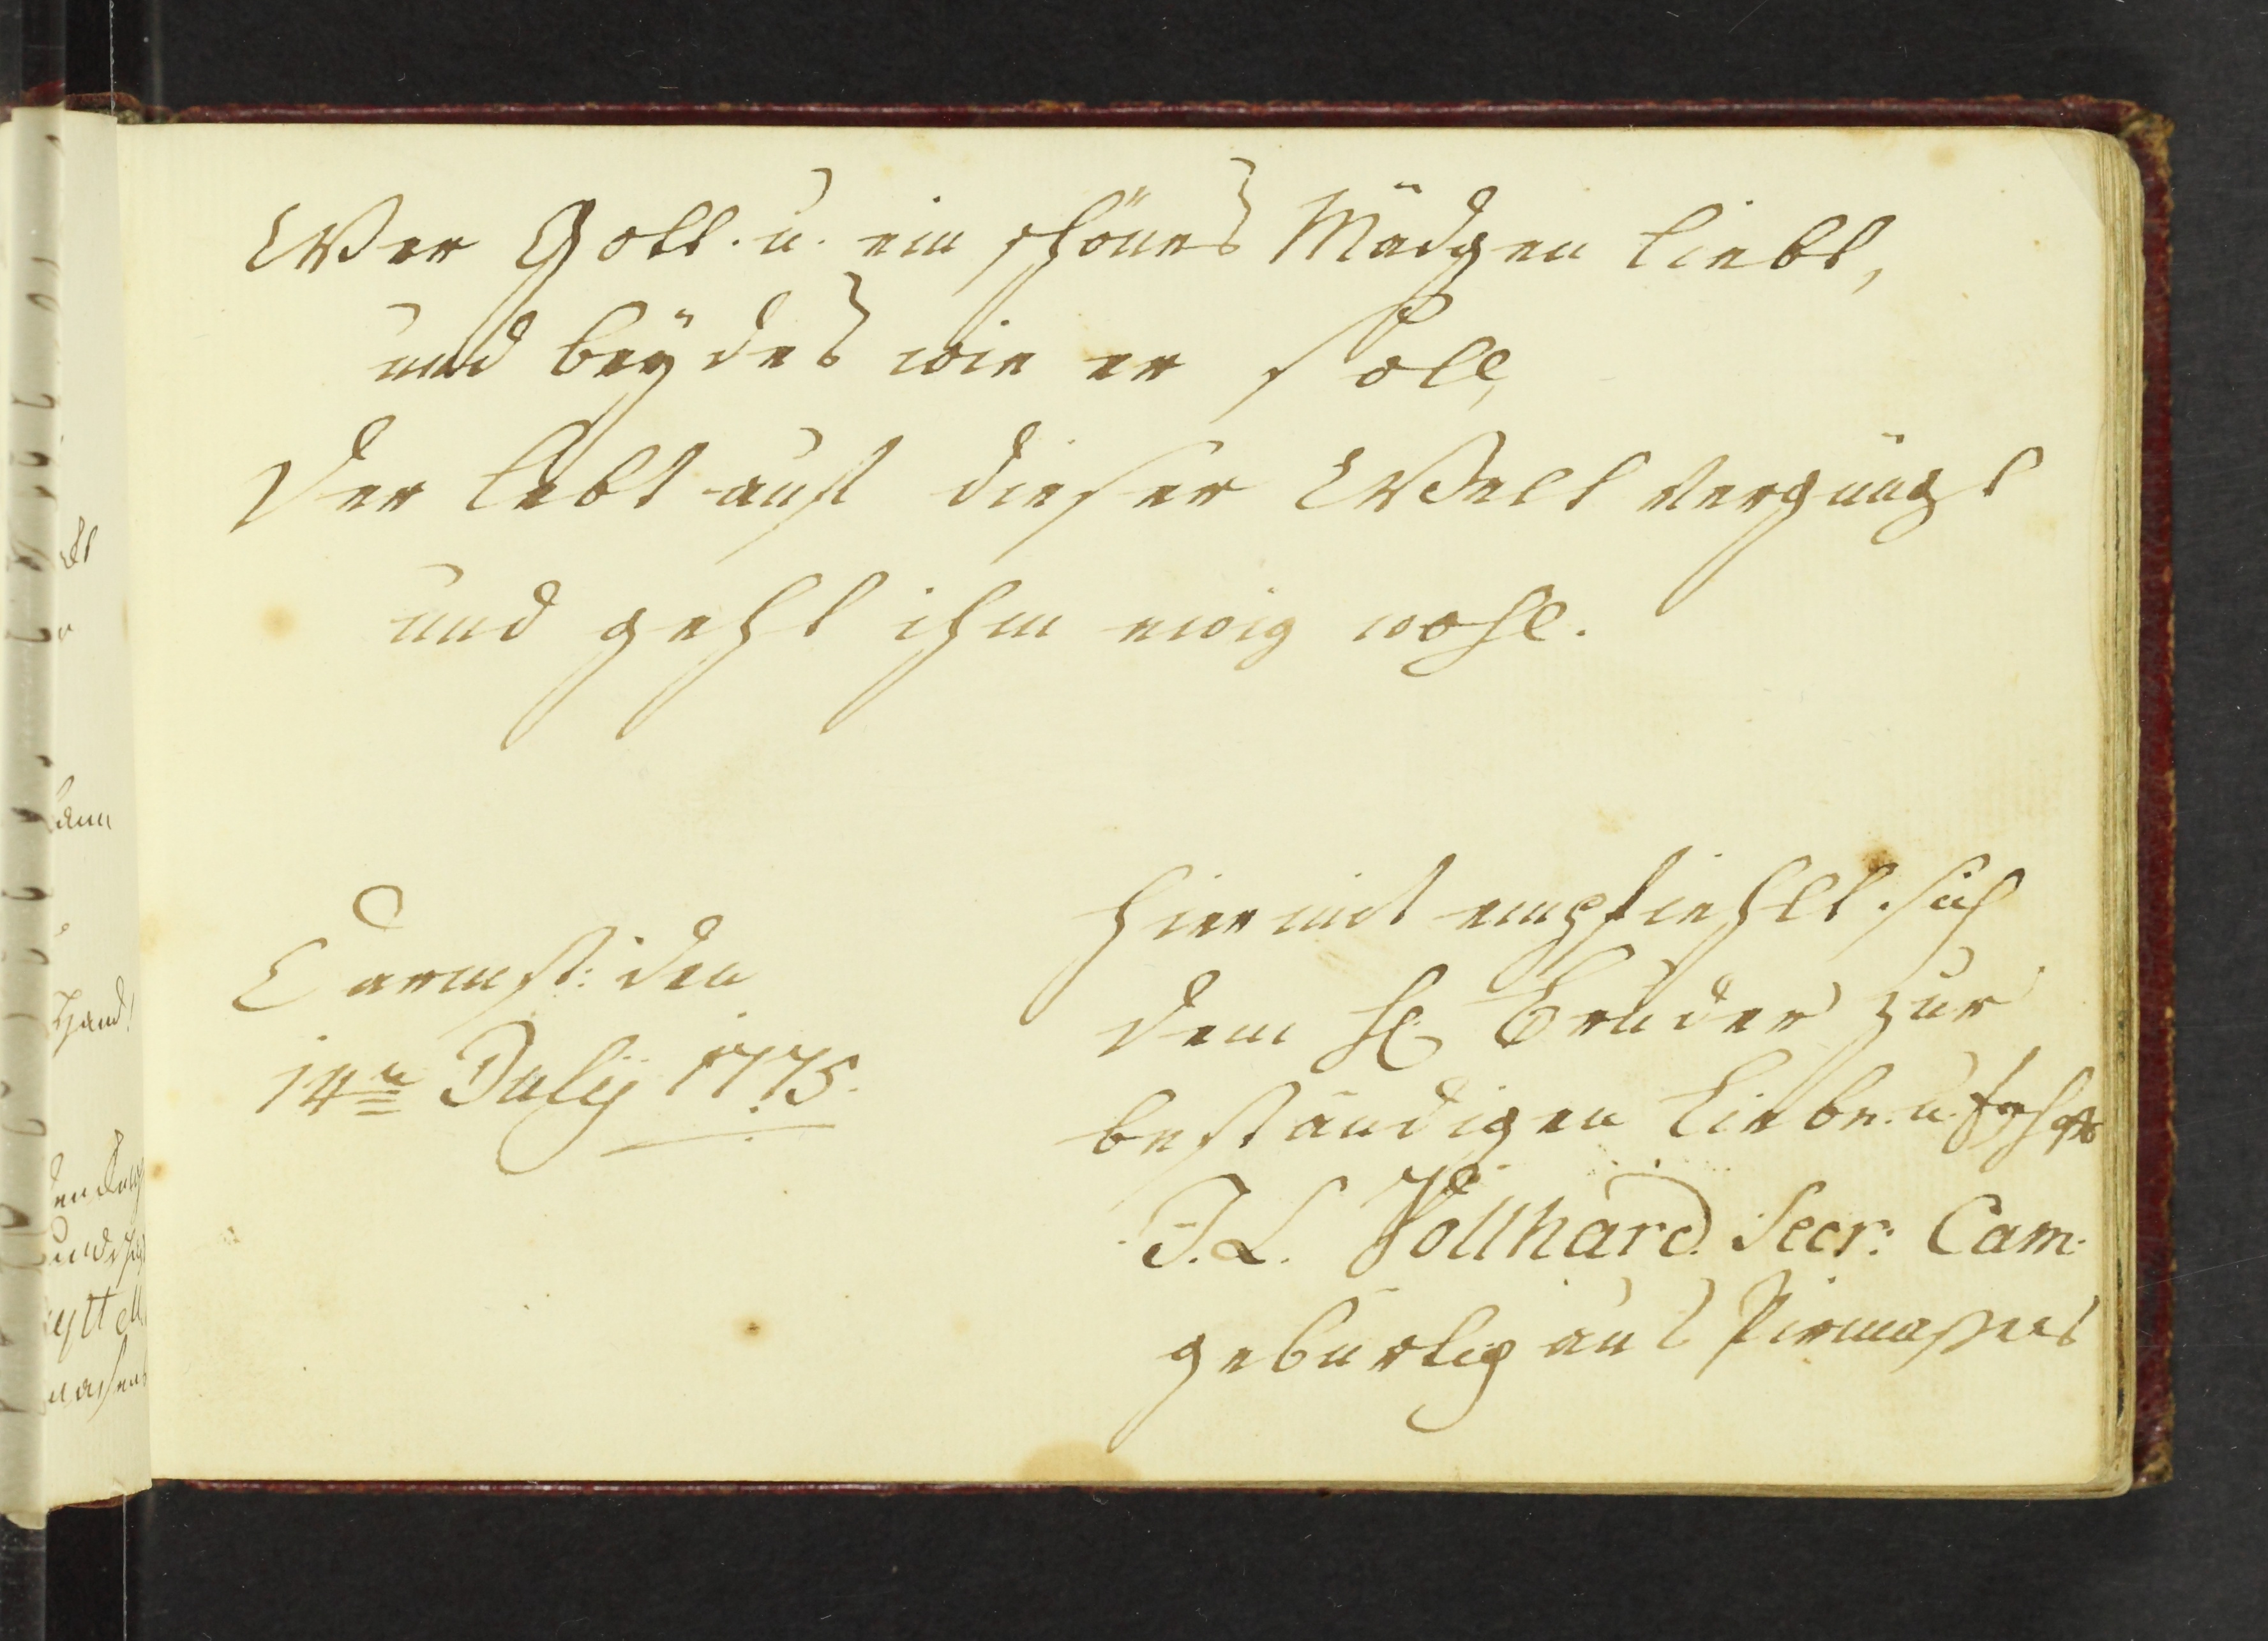 Wer Gott. u. ein schönes Mädgen liebt,
und beÿdes wie er soll,
Der lebt auf dieser Welt vergnügt
und geht ihm ewig wohl.
Darmst: den
14n Julÿ 1775.
Hiermit empfiehlt sich
dem H. Bruder zur
beständigen Liebe. u.
J. L. Vollhard. Secr: Cam.
gebürtig aus Pirmasens